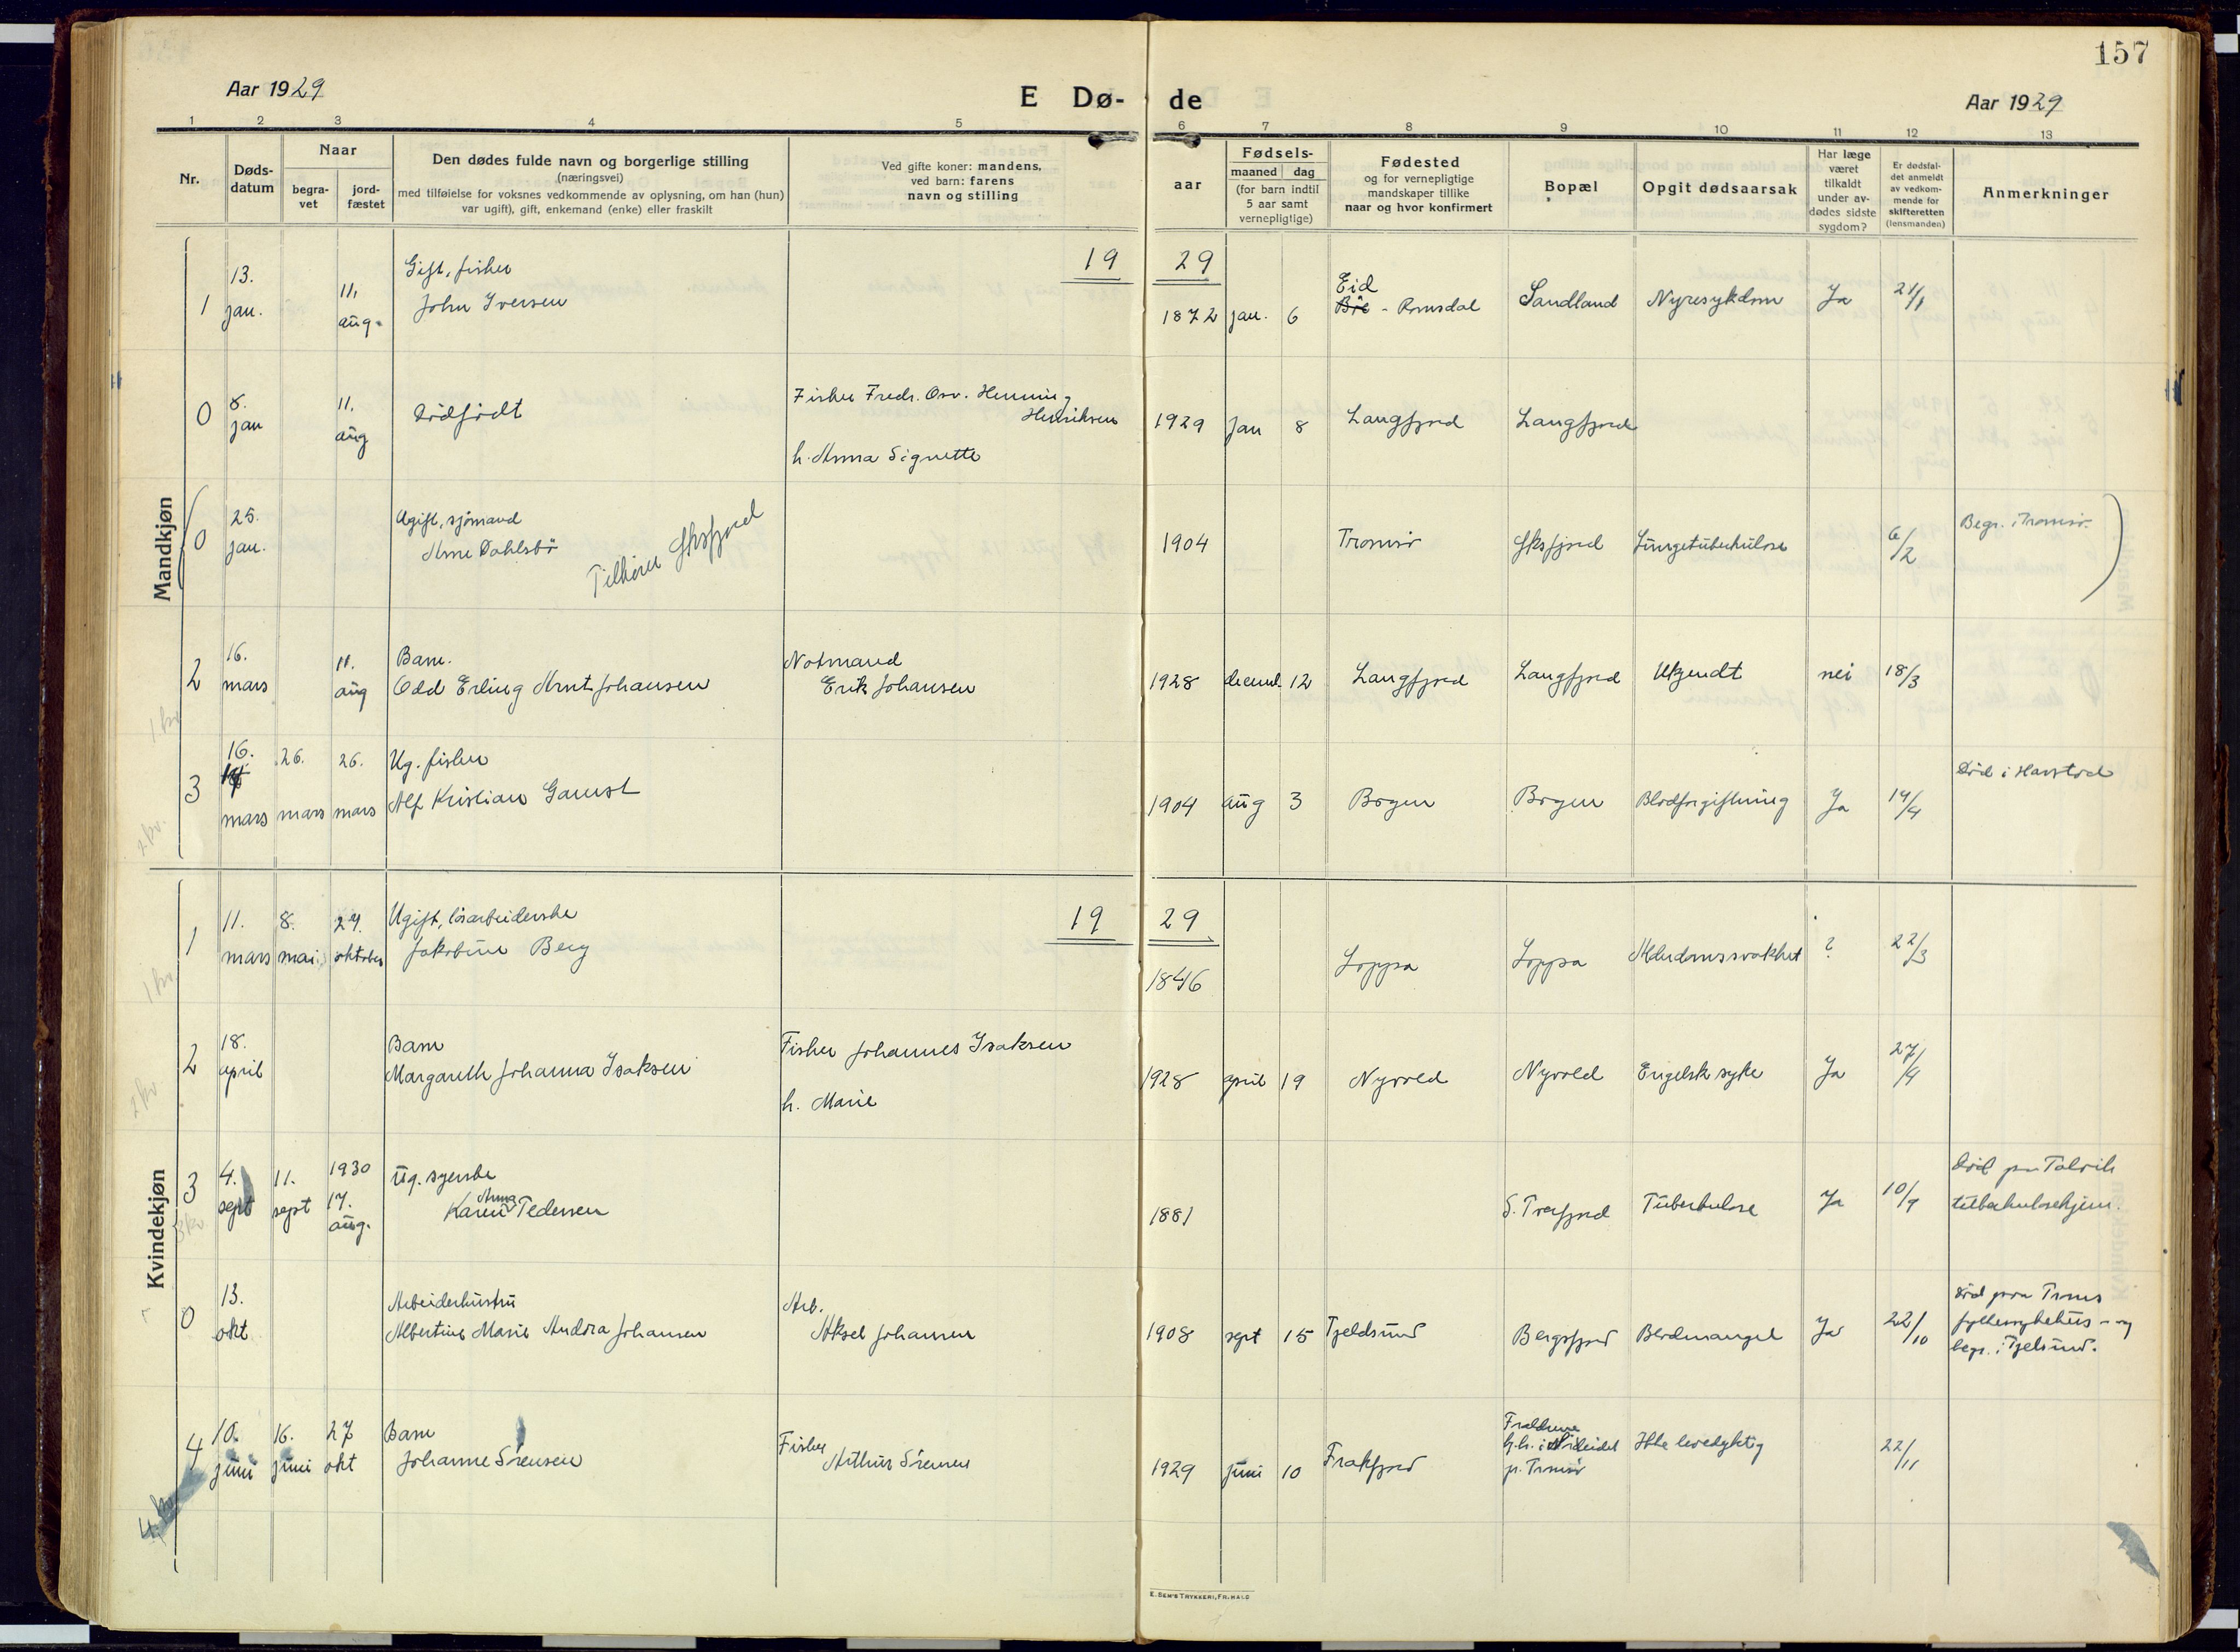 157
Aar 1929
E Dø- de
Aar 1929
1 2 3 4 5 6 7 8 9 10 11 12 13
Nr.
Døds-
datum
Naar
begra-
vet
jord-
fæstet
Den dødes fulde navn og borgerlige stilling
(næringsvei)
med tilføielse for voksnes vedkommende av oplysning, om han (hun)
var ugift), gift, enkemand (enke) eller fraskilt
Ved gifte koner: mandens,
ved barn: farens
navn og stilling
aar
Fødsels-
maaned dag
(for barn indtil
5 aar samt
vernepligtige)
Fødested
og for vernepligtige
mandskaper tillike
naar og hvor konfirmert
Bopæl
Opgit dødsaarsak
Har læge
været
tilkaldt
under av-
dødes sidste
sygdom?
Er dødsfal-
det anmeldt
av vedkom-
mende for
skifteretten
(lensmanden)
Anmerkninger
Mandkjøn
19 29
1
13.
jan.
11.
aug.
Gift, fisker
John Iversen
1872 jan. 6
Eid
Bøe - Romsdal
Sandland
Nyresykdom
Ja
21/1
0
8.
jan
11.
aug
Dødfødt
Fisker Fredr. Osv. Henning
Henriksen
h. Anna Signette
1929 jan 8
Langfjord
Langfjord
0
25.
jan.
Ugift, sjømand
Arne Dahlsbø
Tilhører Øksfjord
1904
Tromsø
Øksfjord
Lungetuberkulose
6/2
Begr. i Tromsø.
2
16.
mars
11.
aug
Barn.
Odd Erling Arnt Johansen
Notmand
Erik Johansen
1928 decemb. 12
Langfjord
Langfjord
Ukjendt
nei
18/3
1 kv
3
16.
mars
26.
mars
26.
mars
Ug. fisker
Alf Kristian Gamst
1904 aug 3
Bogen
Bogen
Blodforgiftning
Ja
19/4
Død i Harstad
2 kv.
Kvindekjøn
19 29
1
11.
mars
8.
mai
27.
oktober
Ugift, løsarbeiderske
Jakobine Berg
1846
Loppa
Loppa
Alderdomssvakhet
?
22/3
1 kv
2
18.
april
Barn
Margareth Johanna Isaksen
Fisker Johannes Isaksen
h. Marie
1928 april 19
Nyvold
Nyvold
Engelsk syke
Ja
27/4
2 kv
3
4.
sept
11.
sept
1930
17.
aug.
Ug. syerske
Anna
Karen Pedersen
1881
S. Tverfjord
Tuberkulose
Ja
10/9
Død paa Talvik
tuberkulosehjem.
3 kv.
0
13.
okt
Arbeiderhustru
Albertine Marie Andora Johansen
Arb.
Aksel Johansen
1908 sept 15
Tjeldsund
Bergsfjord
Blodmangel
Ja
22/10
Død paa Troms
fylkessykehus - og
begr. i Tjelsund.
4
10.
juni
16.
juni
27
okt
Barn
Johanne Sørensen
Fisker
Arthur Sørensen
1929 juni 10
Frakfjord
Forældrene
h.h. i Breideidet
pr. Tromsø
Ikke levedyktig
22/11
4 kv
E. SEM'S TRYKKERI, FR.HALD